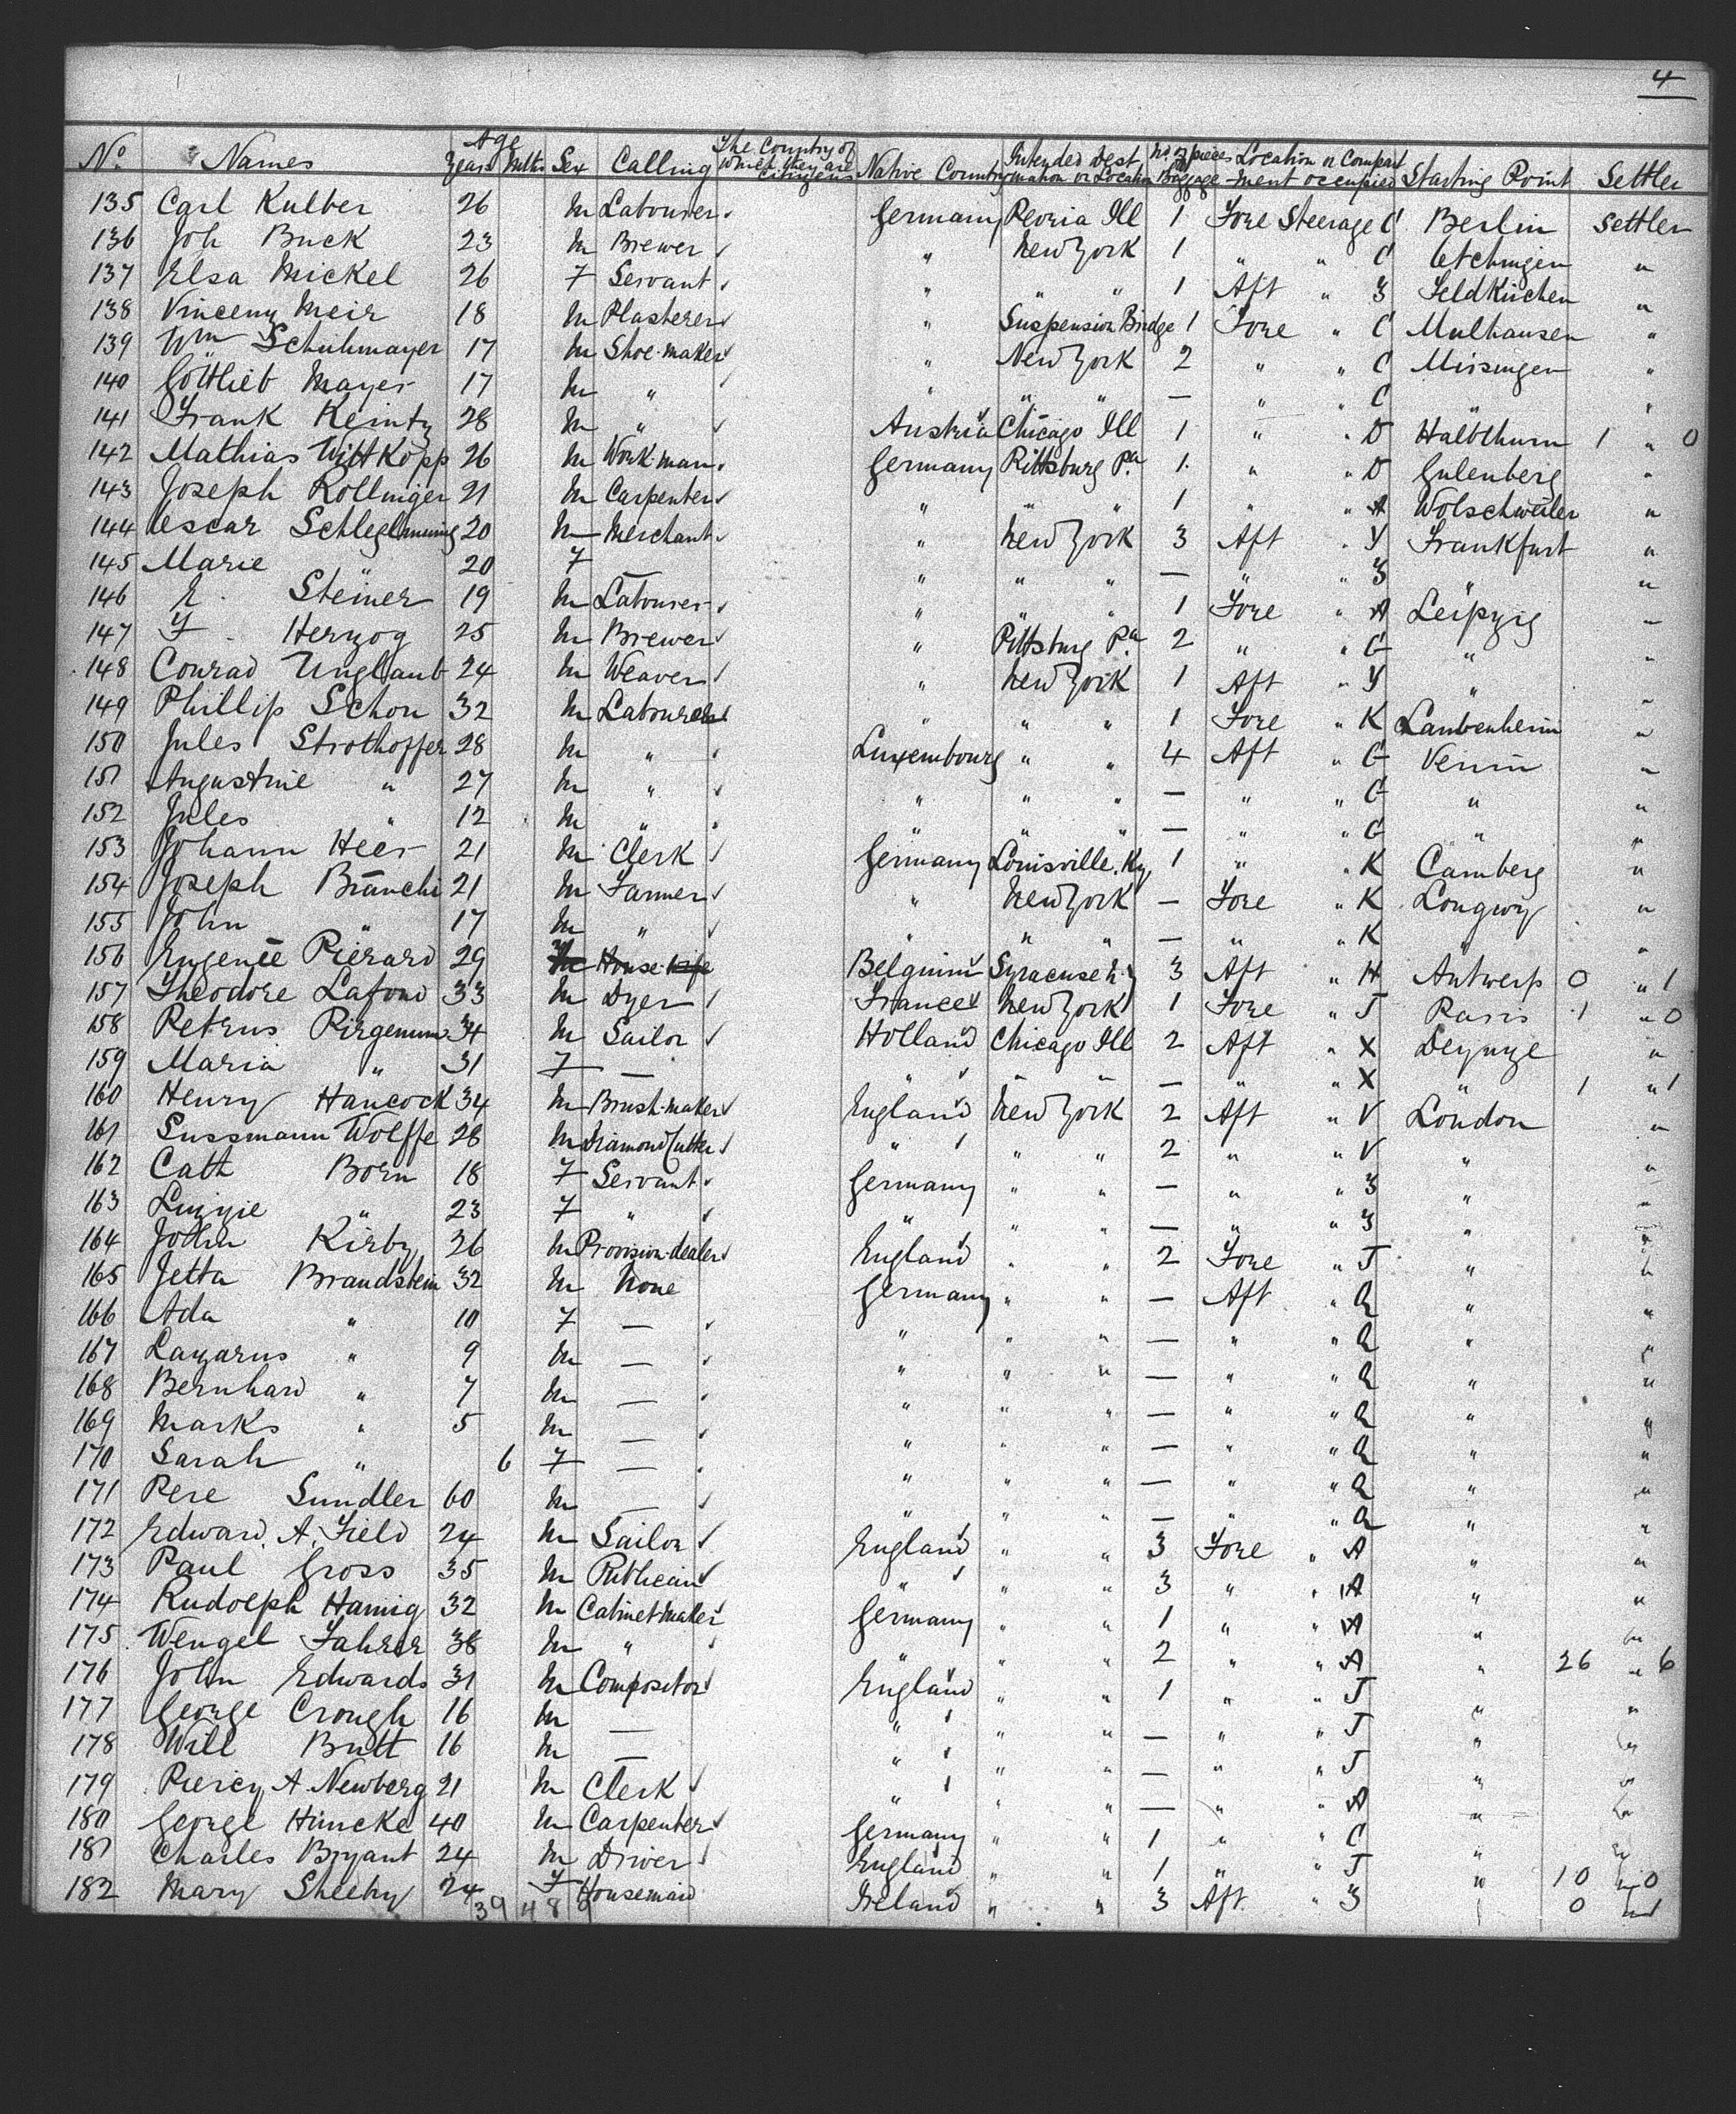 4
No. Names Age Years Mths Sex Calling The Country of which they are Citizens Native Country Intended Destination or Location No. of pieces Baggage Location or Compartment occupied Starting Point Settler
135 Carl Kulber 26 M Labourer Germany Peoria Ill 1 Fore Steerage C Berlin Settler
136 Joh Buck 23 M Brewer " New York 1 " " C "
137 Elsa Mickel 26 F Servant " " " 1 Aft " Z Feldkirchen "
138 Vincenz Meir 18 M Plasterer " Suspension Bridge 1 Fore " C Mulhausen "
139 Wm Schuhmayer 17 M Shoe-maker " New York 2 " " C "
140 Gottlieb Mayer 17 M " " " " — " " C " "
141 Frank Reintz 28 M " Austria Chicago Ill 1 " " D Halbthurn 1 " 0
142 Mathias Wittkopp 26 M Work-man Germany Pittsburg Pa 1 " " D Gulenberg "
143 Joseph Rollinger 21 M Carpenter " " " 1 " " A Wolschweiler "
144 Oscar 20 M Merchant " New York 3 Aft " Y Frankfurt "
145 Marie " 20 F — " " " — " " Z " "
146 E. Steiner 19 M Labourer " " " 1 Fore " A Leipzig "
147 F. Herzog 25 M Brewer " Pittsburg Pa 2 " " G " "
148 Conrad Unglaub 24 M Weaver " New York 1 Aft " Y " "
149 Phillip Schon 32 M Labourer " " " 1 Fore " K Laubenheim "
150 Jules Strothoffer 28 M " Luxembourg " " 4 Aft " G "
151 Augustine " 27 M " " " " — " " G " "
152 Jules " 12 M " " " " — " " G " "
153 Johann Heer 21 M Clerk Germany Louisville, Ky 1 " " K Camberg "
154 Joseph Bianchi 21 M Farmer " New York — Fore " K Longwy "
155 John " 17 M " " " " — " " K "
156 Eugenie Pierard 29 Belgium Syracuse N.Y 3 Aft " H Antwerp 0 " 1
157 Theodore Lafond 33 M Dyer France New York 1 Fore " J Paris 1 " 0
158 Petrus 34 M Sailor Holland Chicago Ill 2 Aft " X "
159 Maria " 31 F — " " — " " X " 1 " 1
160 Henry Hancock 34 M Brush-maker England New York 2 Aft " V London "
161 Sussmann Wolffe 28 M Diamond Cutter " " " 2 " " V " "
162 Cath Born 18 F Servant Germany " " — " " Z " "
163 Lizzie " 23 F " " " " — " " Z " "
164 John Kirby 26 M Provision-dealer England " " 2 Fore " J " "
165 Jetta Brandstein 32 M None Germany " " — Aft " Q " "
166 Ada " 10 F — " " " — " " Q " "
167 Lazarus " 9 M — " " " — " " Q " "
168 Bernhard " 7 M — " " " — " " Q " "
169 Marks " 5 M — " " " — " " Q " "
170 Sarah " 6 F — " " " — " " Q " "
171 Pere Sundler 60 M — " " " — " " Q " "
172 Edward. A. Field 24 M Sailor England " " 3 Fore " A " "
173 Paul Gross 35 M Publican " " " 3 " " A " "
174 Rudolph Hamig 32 M Cabinet-maker Germany " " 1 " " A " "
175 Wenzel Fahrer 38 M " " " 2 " " A " 26 " 6
176 John Edwards 31 M Compositor England " " 1 " " J " "
177 George Crough 16 M — " " " — " " J " "
178 Will Butt 16 M — " " " — " " J " "
179 Piercy A. Newberg 21 M Clerk " " " — " " A " "
180 George Himcke 40 M Carpenter Germany " " 1 " " C " "
181 Charles Bryant 24 M Driver England " " 1 " " J " 10 " 0
182 Mary Sheehy 24 F Housemaid Ireland " " 3 Aft " Z 0 " 1
39 4 8 9